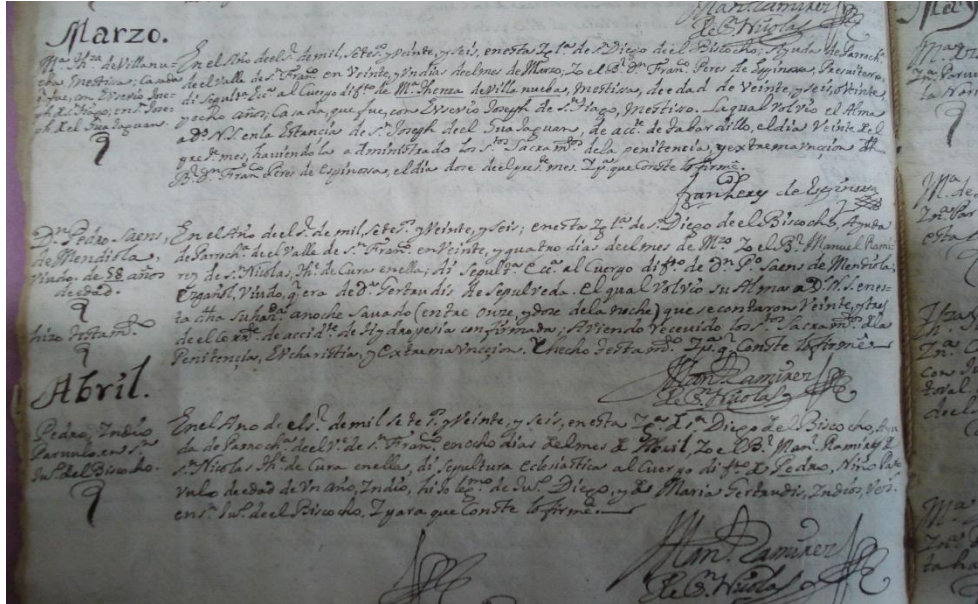 Man. Ramirez
de S.n Nicolas
Marzo.
M.a Th.a de Villanu-
eba mestiza; Casada
q. fue, con Eusevio Jose-
ph de S.tiago, en S.n Jose-
ph de el Guadaguan.
En el Año de el S.r de mil, setes.s y Veinte, y seis, en esta Ygl.a de S.n Diego de el Biscocho; Ayuda de Parroch.
de el Valle de S.n Fran.co en Veinte, y un dias de el mes de Marzo; Yo el B.r D.n Fran.co Peres de Espinosa, Presvitero
di Sepult.a Ecc.a al Cuerpo dif.to de M.a Theresa de Villanueba, mestiza, de edad de Veinte, y seis, o Veinte,
y ocho años, Casada, que fue, con Eusevio Joseph de S.tiago, Mestizo. La qual Volvio el Alma
a D.s N.S. en la Estancia de S.n Joseph de el Guadaguan, de acc.te de tabardillo, el dia Veinte de el
pres.te mes, haviendola administrado los S.tos Sacram.tos de la penitencia, y extremauncion el
B.r D.n Fran.co Peres de Espinosa, el dia doce de el pres.te mes. Y p.a que Conste lo firmè.
Fran.co Perez de Espinosa
D.n Pedro Saens,
de Mendiola,
Viudo. de 58 años
de edad.
hizo testam.to
En el Año de el S.r de mil, setes.s y Veinte, y seis; en esta Ygl.a de S.n Diego de el Biscocho, Ayuda
de Parroch.a de el Valle de S.n Fran.co en Veinte, y quatro dias de el mes de M.zo Yo el B.r Manuel Rami
rez de S.n Nicolas, Th.e de Cura en ella; di Sepult.a Ecc.a al Cuerpo dif.to de D.n P.o Saens de Mendiola;
Español, Viudo, q. era de D.a Gertrudis de Sepulveda. El qual Volvio su Alma a D. N.S. en es-
ta dha anoche Savado (entre onze, y doze de la noche) que se contaron Veinte, y tres
de el Corr.te de accid.te de Hydropesia confirmada; Aviendo recevido los S.tos Sacram.tos de la
Penitencia, Eucharistia, y Extremauncion. Y hecho testam.to Y p.a q. Conste lo firmè
Man. Ramirez
de S.n Nicolas
Abril.
Pedro, Indio
Parvulo, en S.n
Ju.n del Biscocho.
En el Año de el S.r de mil sete s.s y Veinte, y seis, en esta Yg.a de S.n Diego de el Biscocho, Ayu
da de Parroch.a de el V.e de S.n Fran.co en ocho dias de el mes de Abril, Yo el B.r Man.l Ramirez de
S.n Nicolas Th.e de Cura en ella, di sepultura eclesiastica al Cuerpo dif.to de Pedro, Niño Par
vulo de edad de Un año, Indio, hijo leg.mo de Ju.n Diego, y de Maria Gertrudis, Indios, Vez.s
en S.n Ju.n de el Biscocho. Y para que Conste lo firmè.
Man. Ramirez
de S.n Nicolas